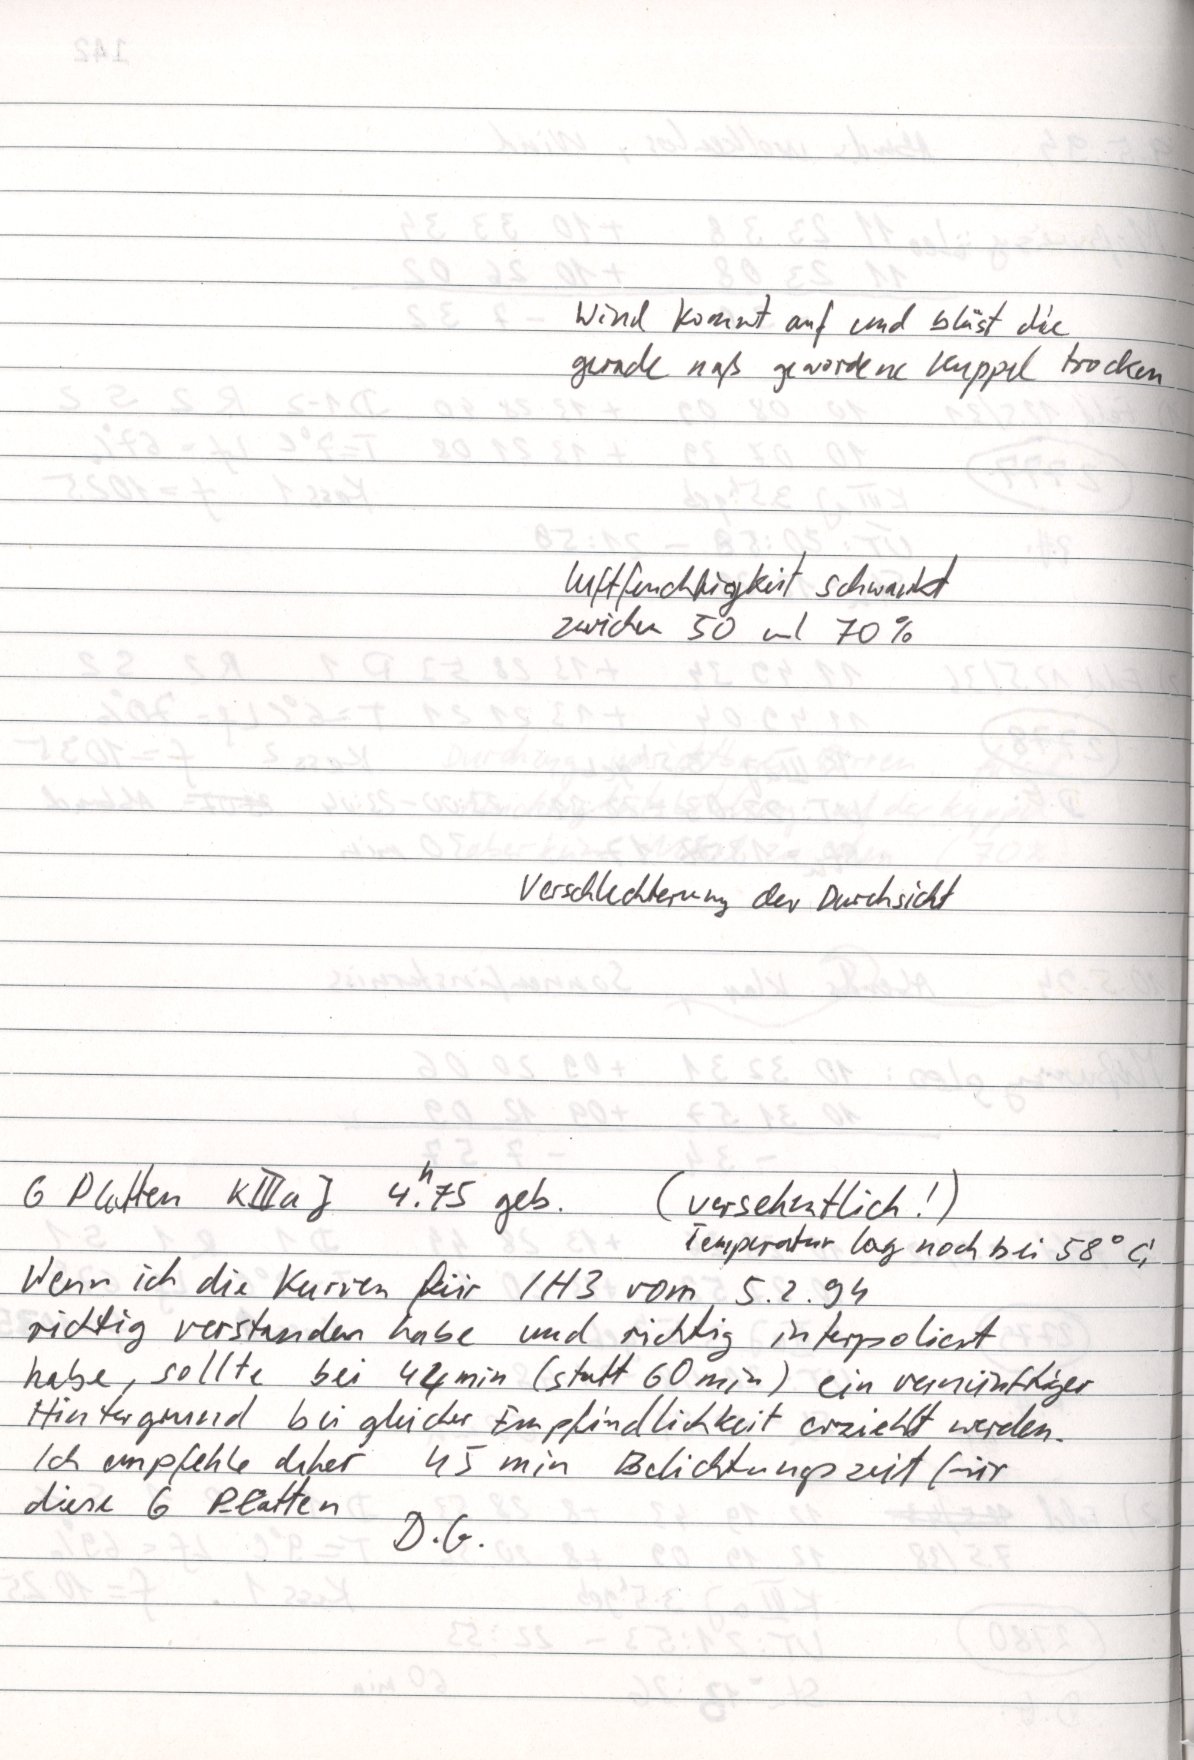 Wind kommt auf und bläst die
gerade naß gewordene Kuppel trocken
Luftfeuchtigkeit schwankt
zwischen 50 und 70%
Verschlechterung der Durchsicht
6 Platten KIIIaJ 4.ʰ75 geb. (versehentlich!)
Temperatur lag noch bei 58°C
Wenn ich die Kurven für 1H3 vom 5.2.94
richtig verstanden habe und richtig interpoliert
habe, sollte bei 44min (statt 60min) ein vernünftiger
Hintergrund bei gleicher Empfindlichkeit erzielt werden.
Ich empfehle daher 45 min Belichtungszeit für
diese 6 Platten
D.G.